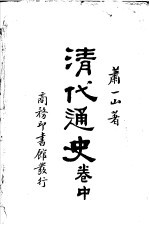 蕭一山著
清代通史卷中
商務印書館發行